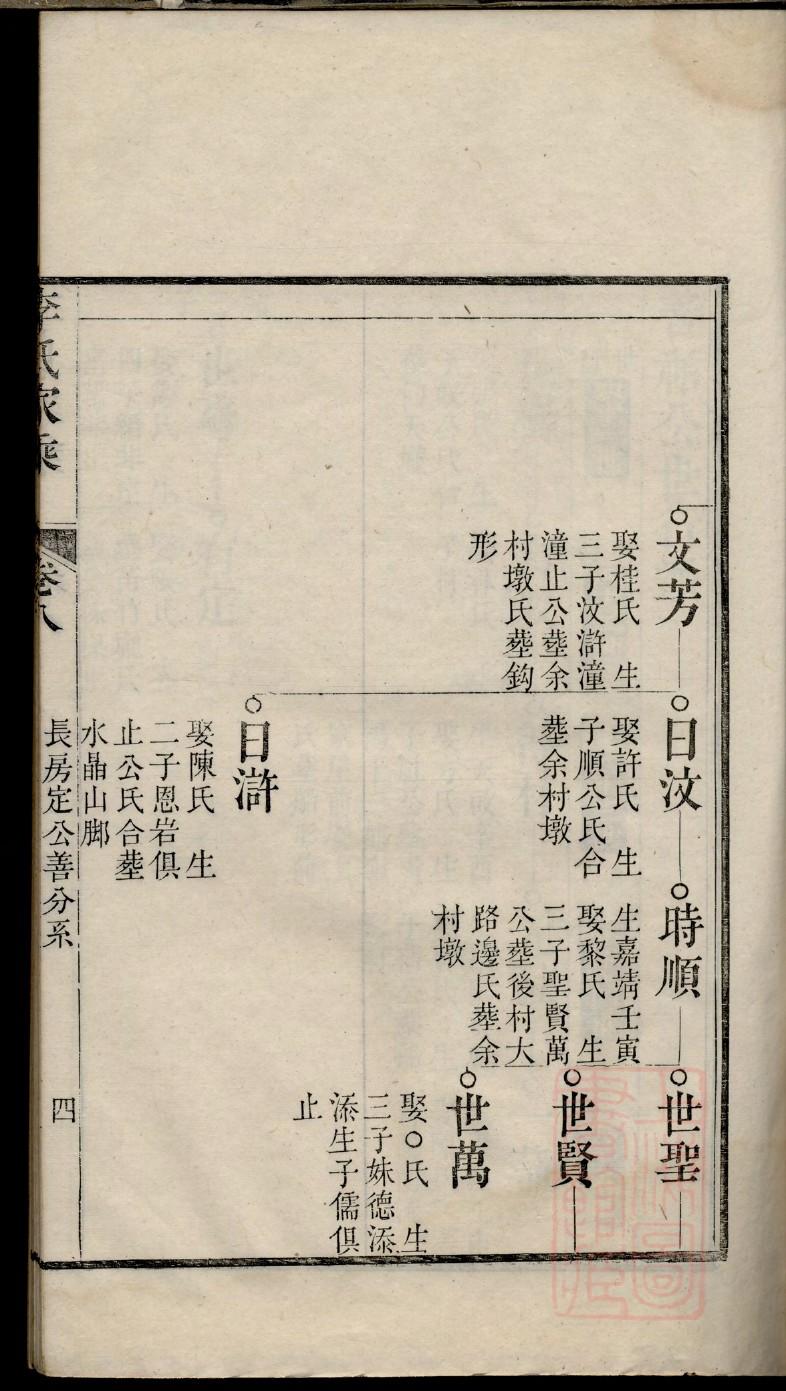 文芳
娶桂氏　生
三子汶滸潼
潼止公塟余
村墩氏塟鈎
形
日汶
娶許氏　生
子順公氏合
塟余村墩
時順
生嘉靖壬寅
娶黎氏　生
三子聖賢萬
公塟後村大
路邊氏塟余
村墩
世聖
世賢
世萬
娶○氏　生
三子妹德添
添生子儒俱
止
日滸
娶陳氏　生
二子恩岩俱
止公氏合塟
水晶山脚
長房定公善分系
四
李氏家乘
卷八